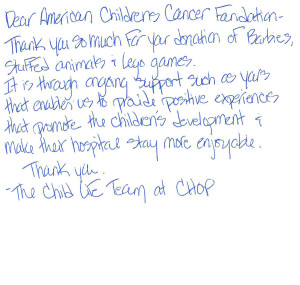 Dear American Childrens Cancer Foundation-
Thank you so much for your donation of Barbies,
stuffed animals & Lego games.
It is through ongoing support such as yours
that enables us to provide positive experiences
that promote the children's development &
make their hospital stay more enjoyable.
Thank you.
-The Child Life Team at CHOP